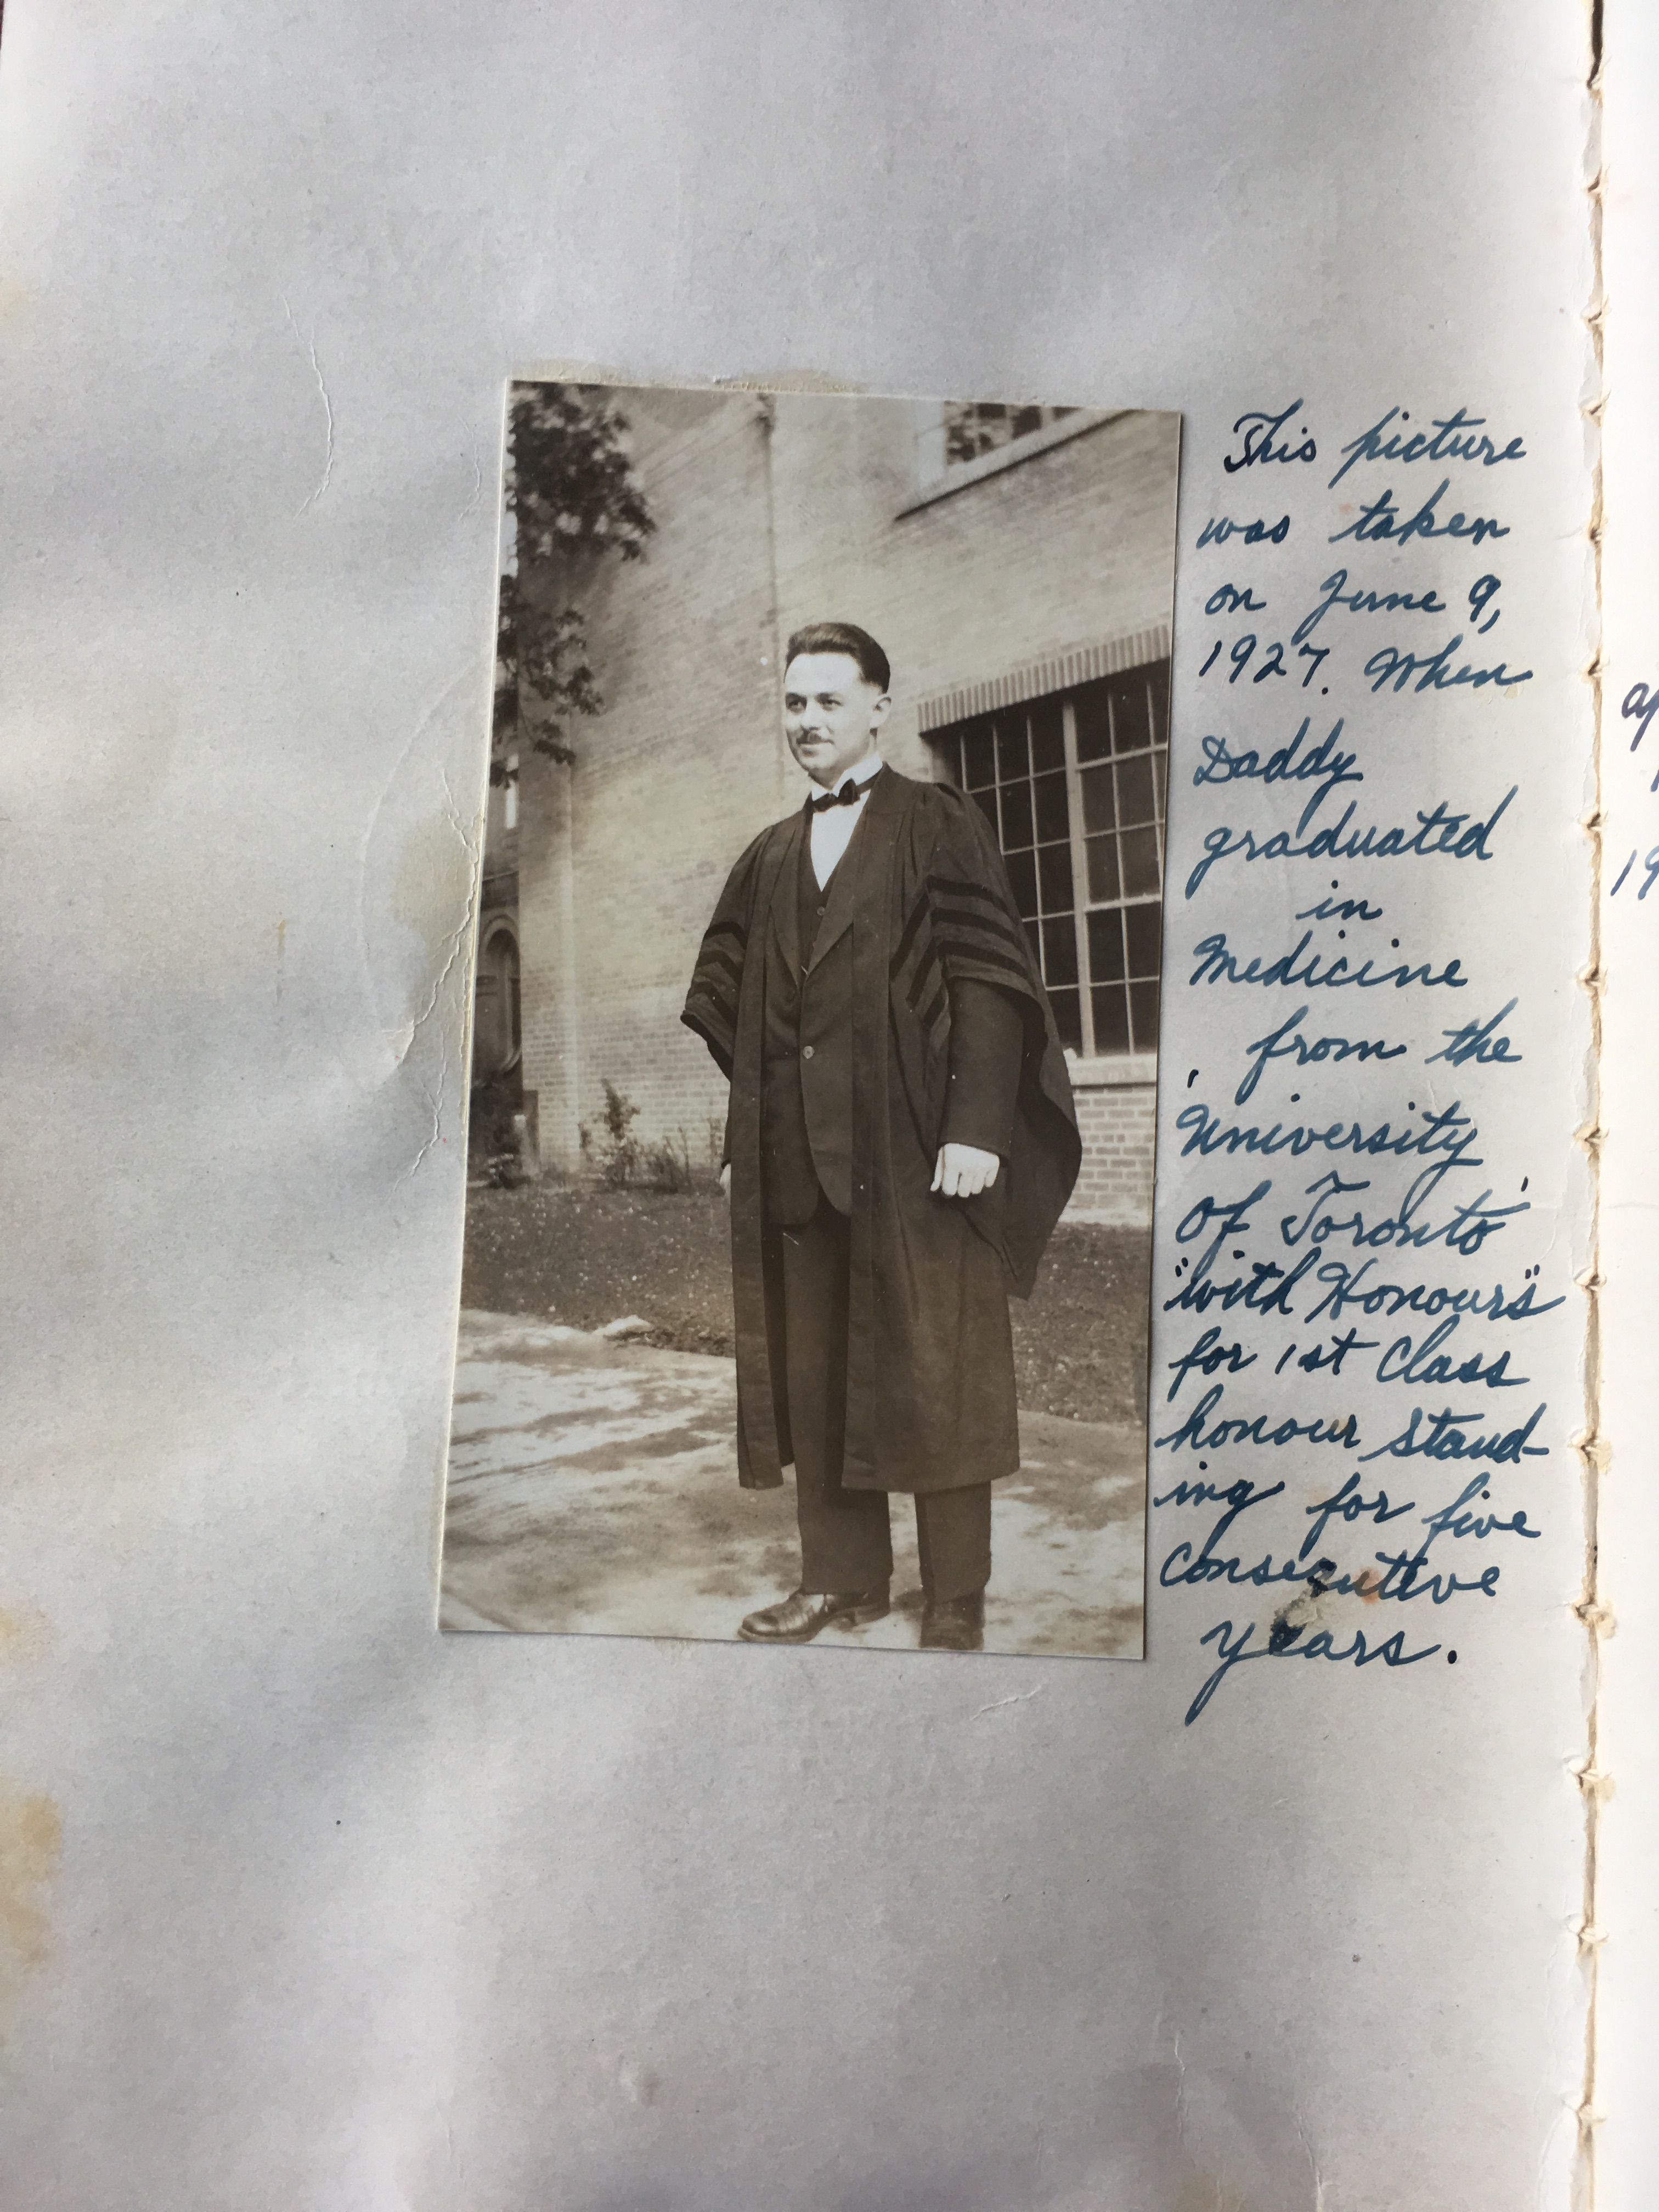 This picture
was taken
on June 9,
1927. When
Daddy
graduated
in
Medicine
from the
'University
of Toronto'
"with Honours"
for 1st Class
honour stand-
ing for five
consecutive
years.
19